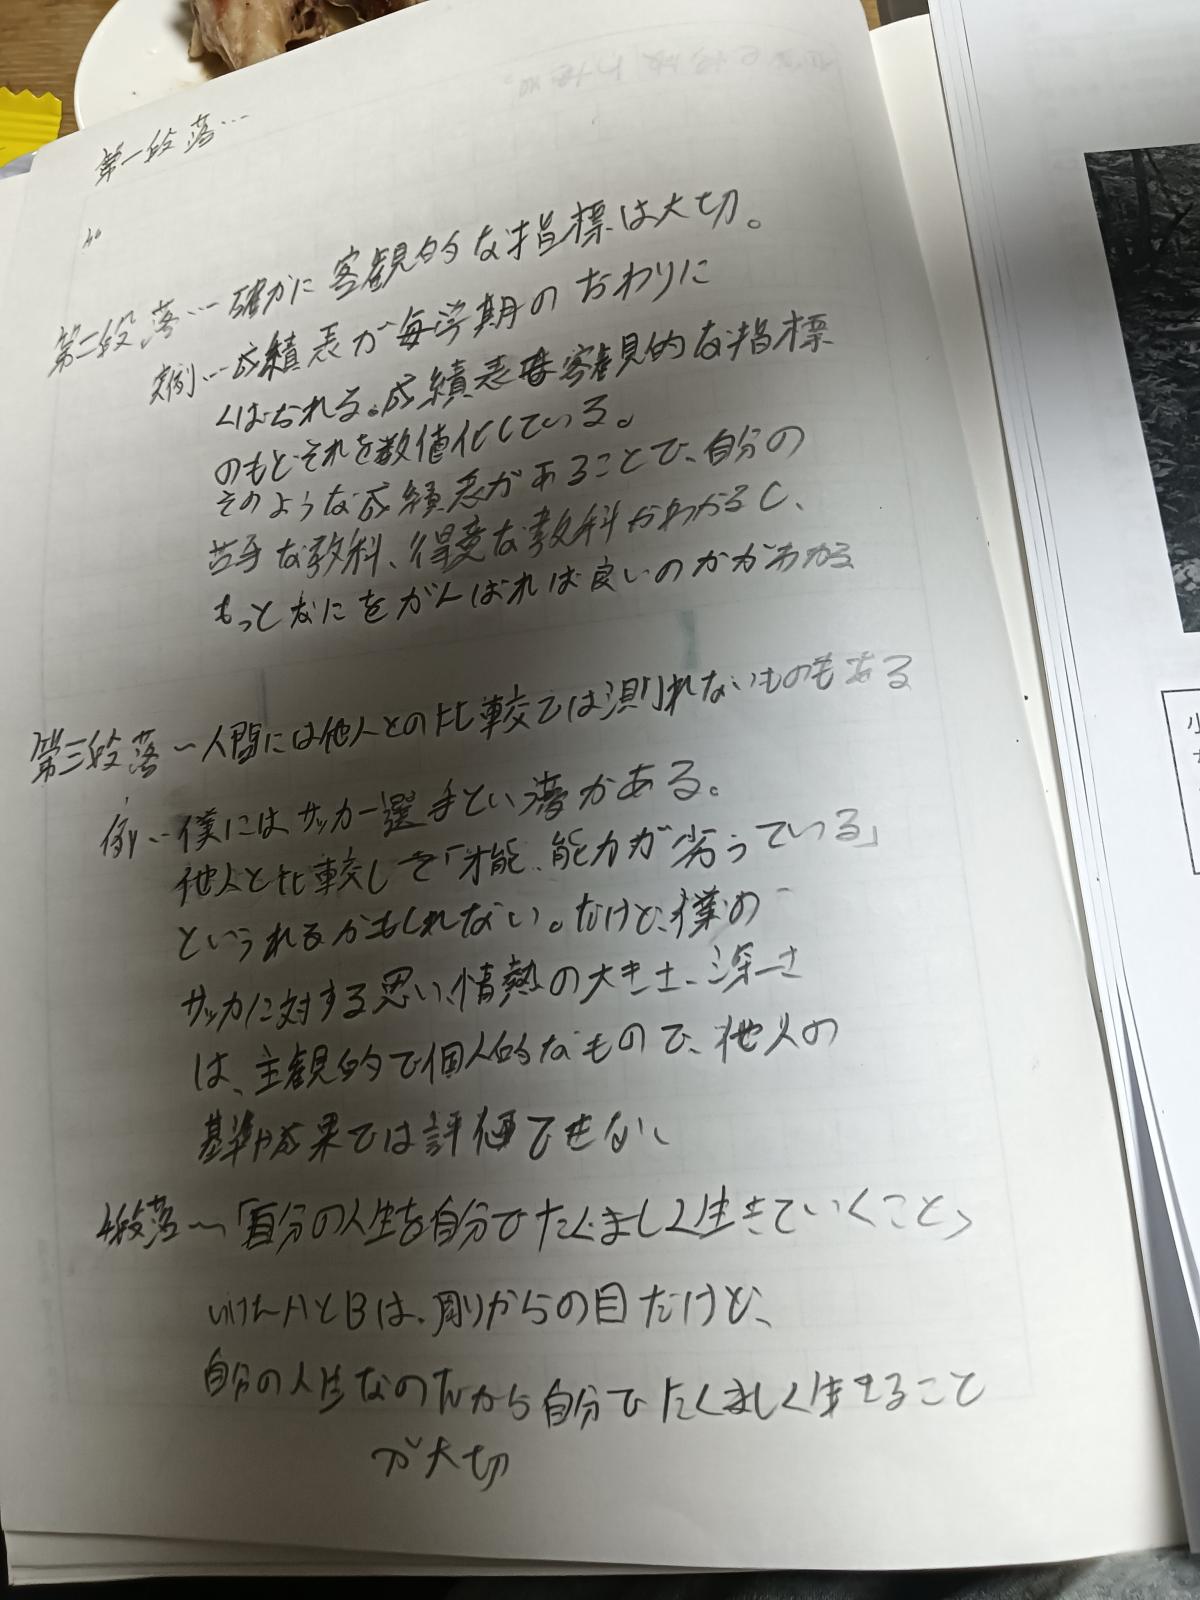 第一段落…
第二段落…確かに客観的な指標は大切。
実例…成績表が毎学期のおわりに
くばられる。成績表は客観的な指標
のもとそれを数値化している。
そのような成績表があることで、自分の
苦手な教科、得意な教科がわかるし、
もっとなにをがんばれば良いのかがわかる
第三段落〜人間には他人との比較では測れないものもある
例…僕にはサッカー選手とい夢がある。
他人と比較して「才能、能力が劣っている」
といわれるかもしれない。だけど、僕の
サッカに対する思い、情熱の大きさ、深さ
は、主観的で個人的なもので、他人の
基準や成果では評価できない
4段落〜「自分の人生を自分でたくましく生きていくこと」
AとBは、周りからの目だけど、
自分の人生なのだから自分でたくましく生きること
が大切